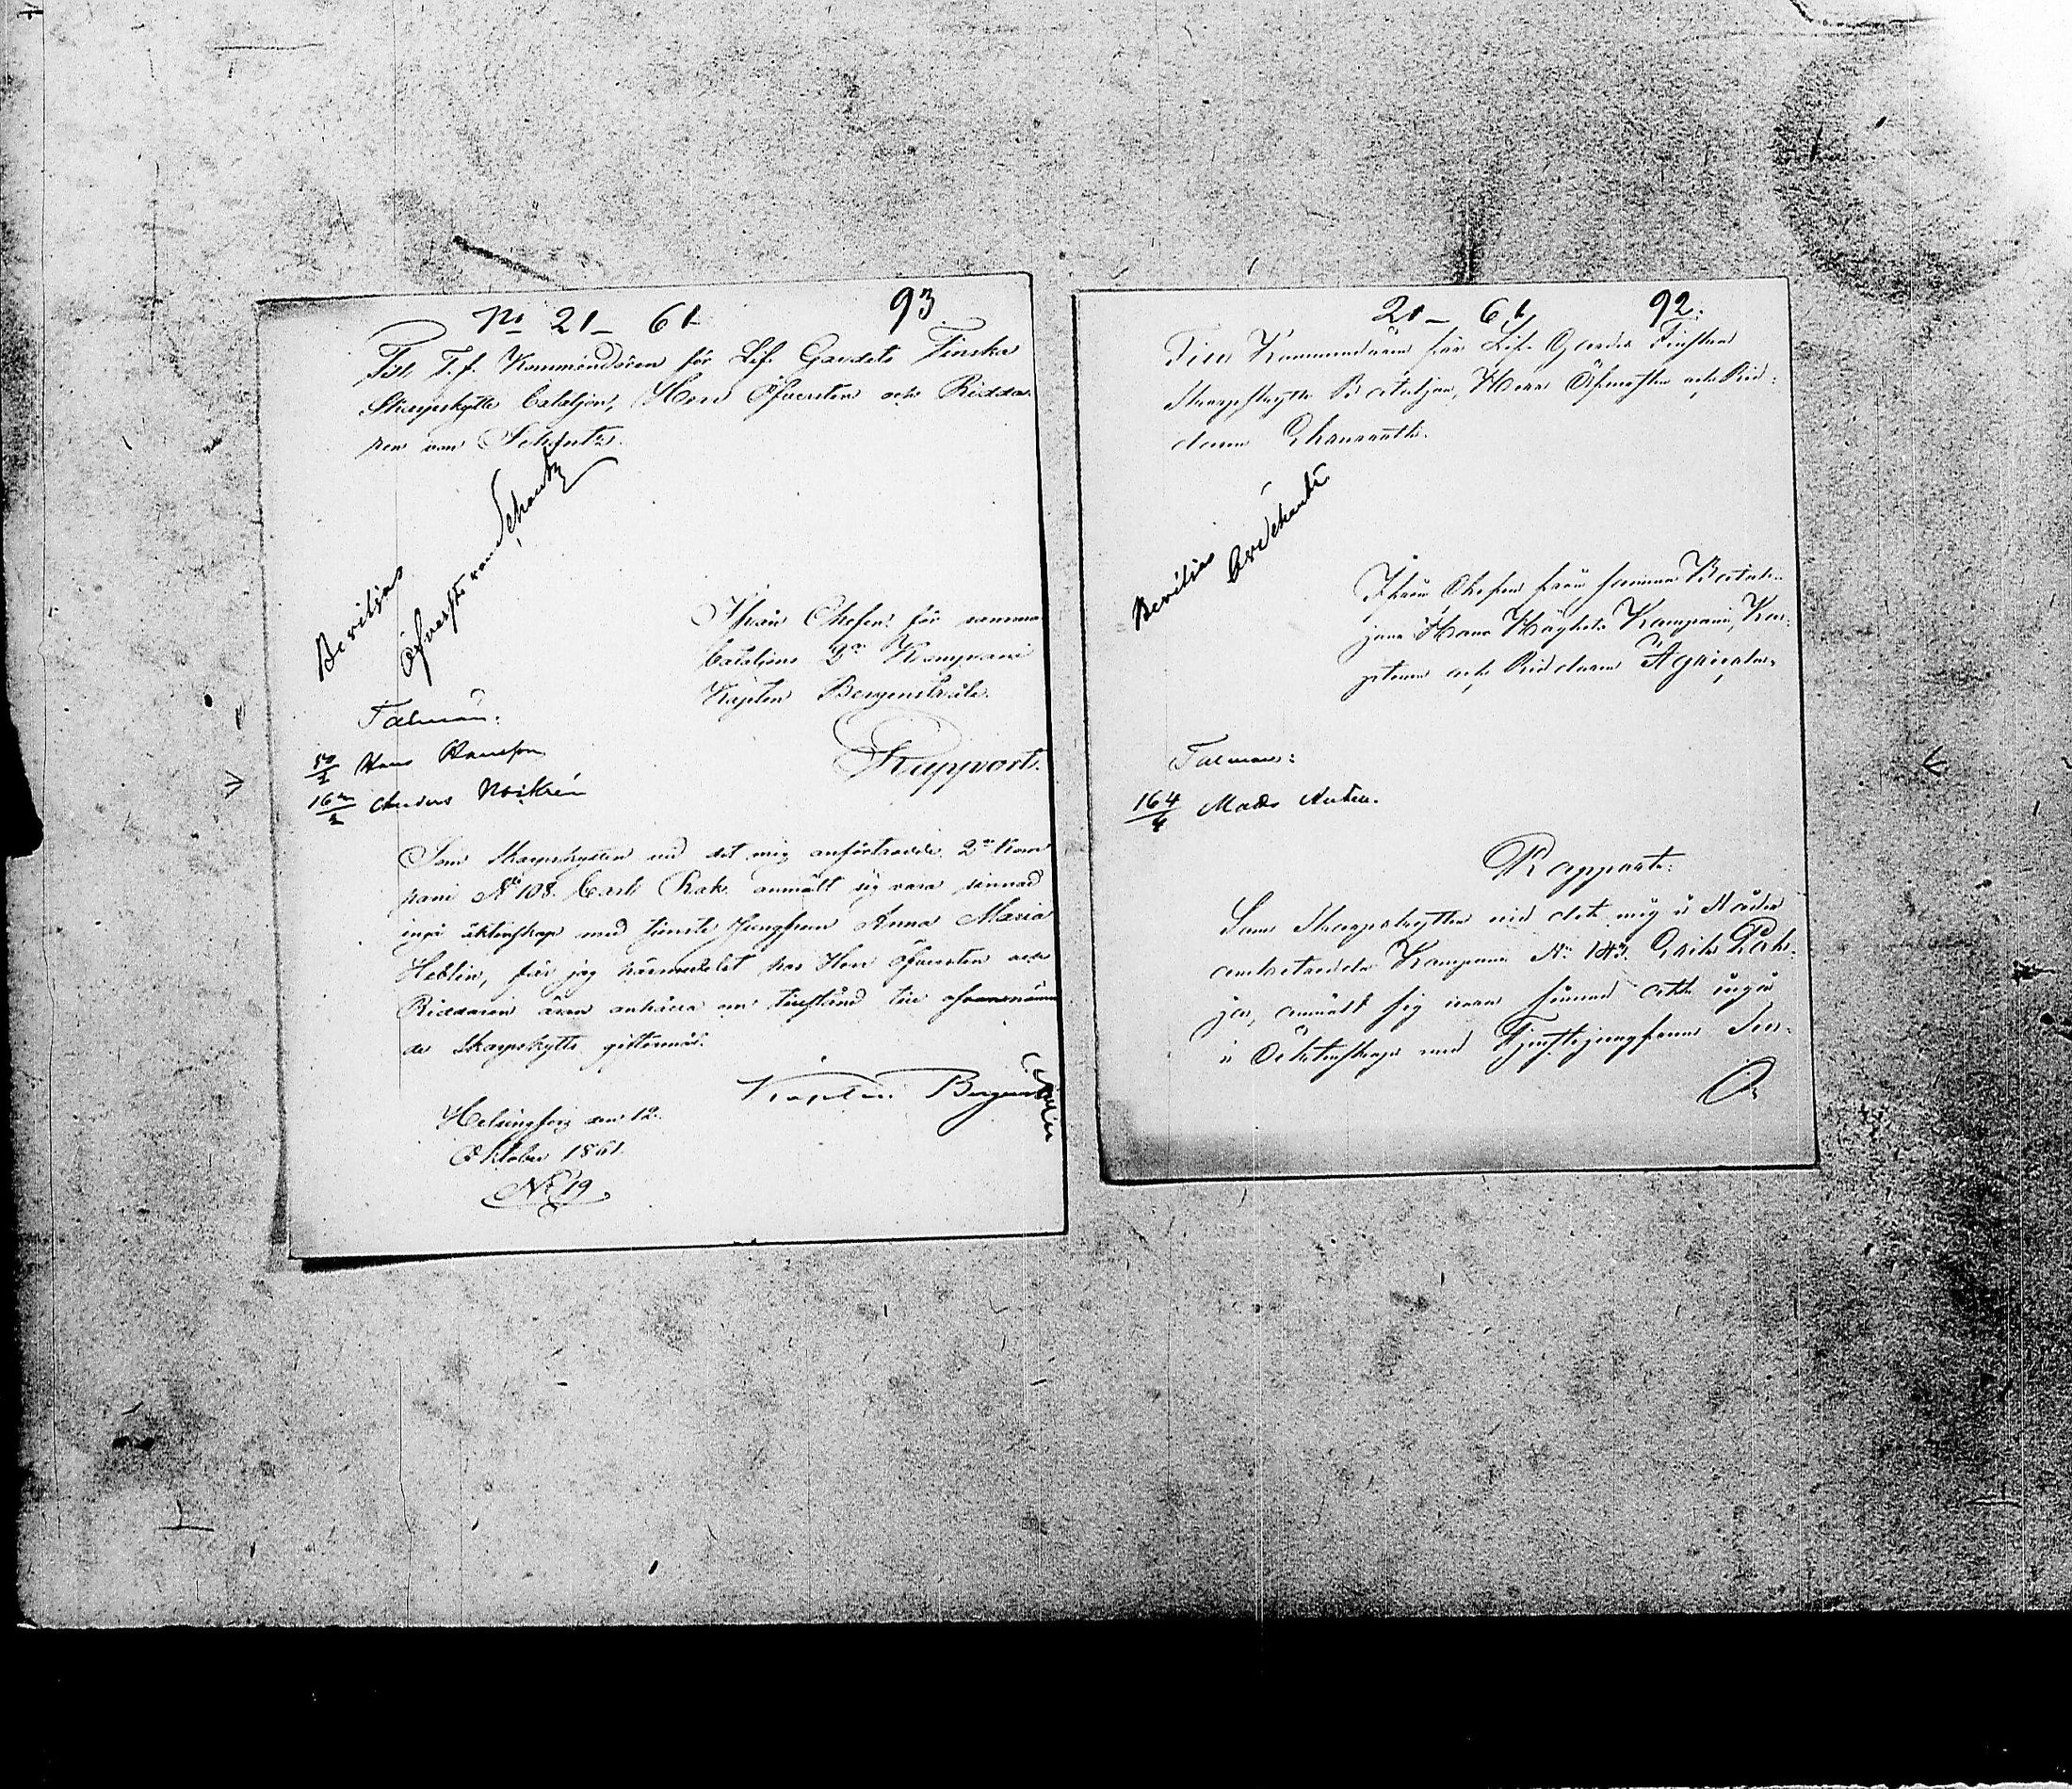 No 21 – 61 93
Till T. f. Kommendören för Lif-Gardets Finska
Skarpskytte bataljon, Herr Öfversten och Ridda-
ren von Schantz.
Beviljas
Öfverste von Schantz
Ifrån Chefen för samma
bataljons 2dra Kompani
Kapten Bergenstråle.
Talmän:
Rapport.
50/2 Hans Hansson
162/2 Anders Norkrén
Som Skarpskytten vid det mig anförtrodde 2dra Kom
pani No 108. Carl Rak anmält sig vara sinnad
ingå äktenskap med tjenste Jungfrun Anna Maria
Heblin, får jag härmedelst hos Herr Öfversten och
Riddaren äran anhålla om tillstånd till ofvannämn
de Skarpskytts giftermål.
Kapten Bergenstråle
Helsingfors den 12.
Oktober 1861.
No 19
21 – 61 92.
Till Kommendören för Lif-Gardets Finska
Skarpskytte Bataljon, Herr Öfversten och Rid-
daren
Beviljas
Ifrån Chefen för samma Batal-
jons Hans Höghets Kompani, Kap-
ten och Riddaren Agricola,
Talman:
164/4 Matts
Rapport.
Som Skarpskytten vid det mig i Nåder
anbetrodda Kompani No 143. Erik
anmält sig vara sinnad att ingå
i Äktenskap med Tjenstejungfrun